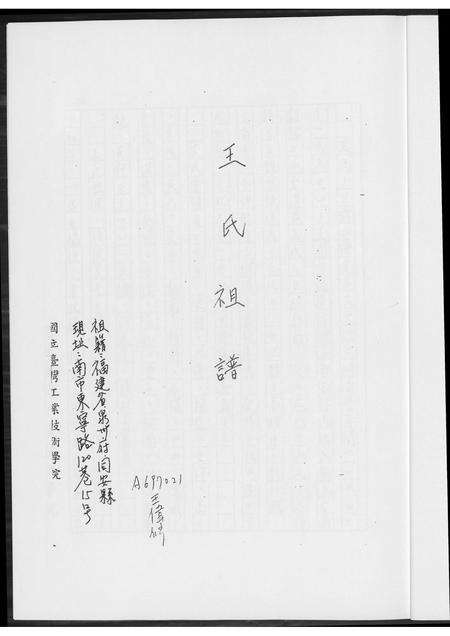 王氏祖譜
祖籍:福建省泉州府同安縣
現址:南市東寧路120巷15号
國立臺灣工業技術學院
A697021
王偉